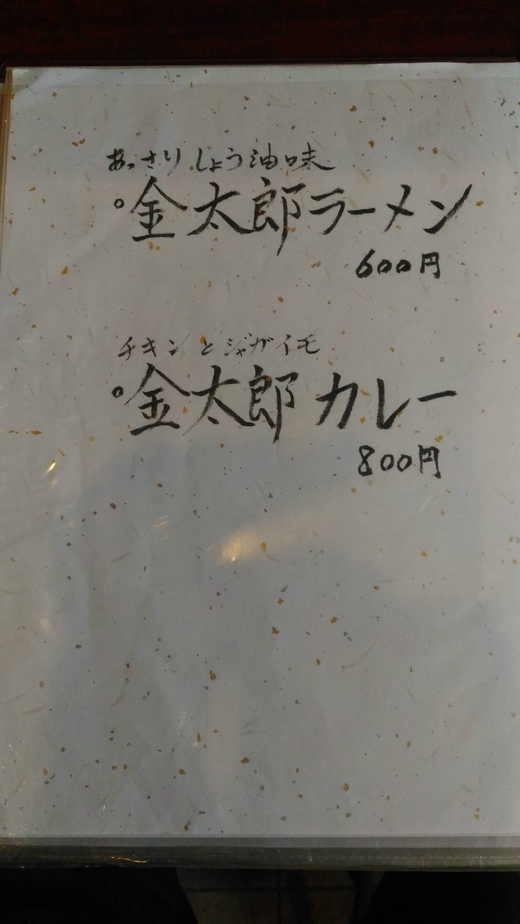 あっさりしょう油味
°金太郎ラーメン
600円
チキンとジャガイモ
°金太郎カレー
800円